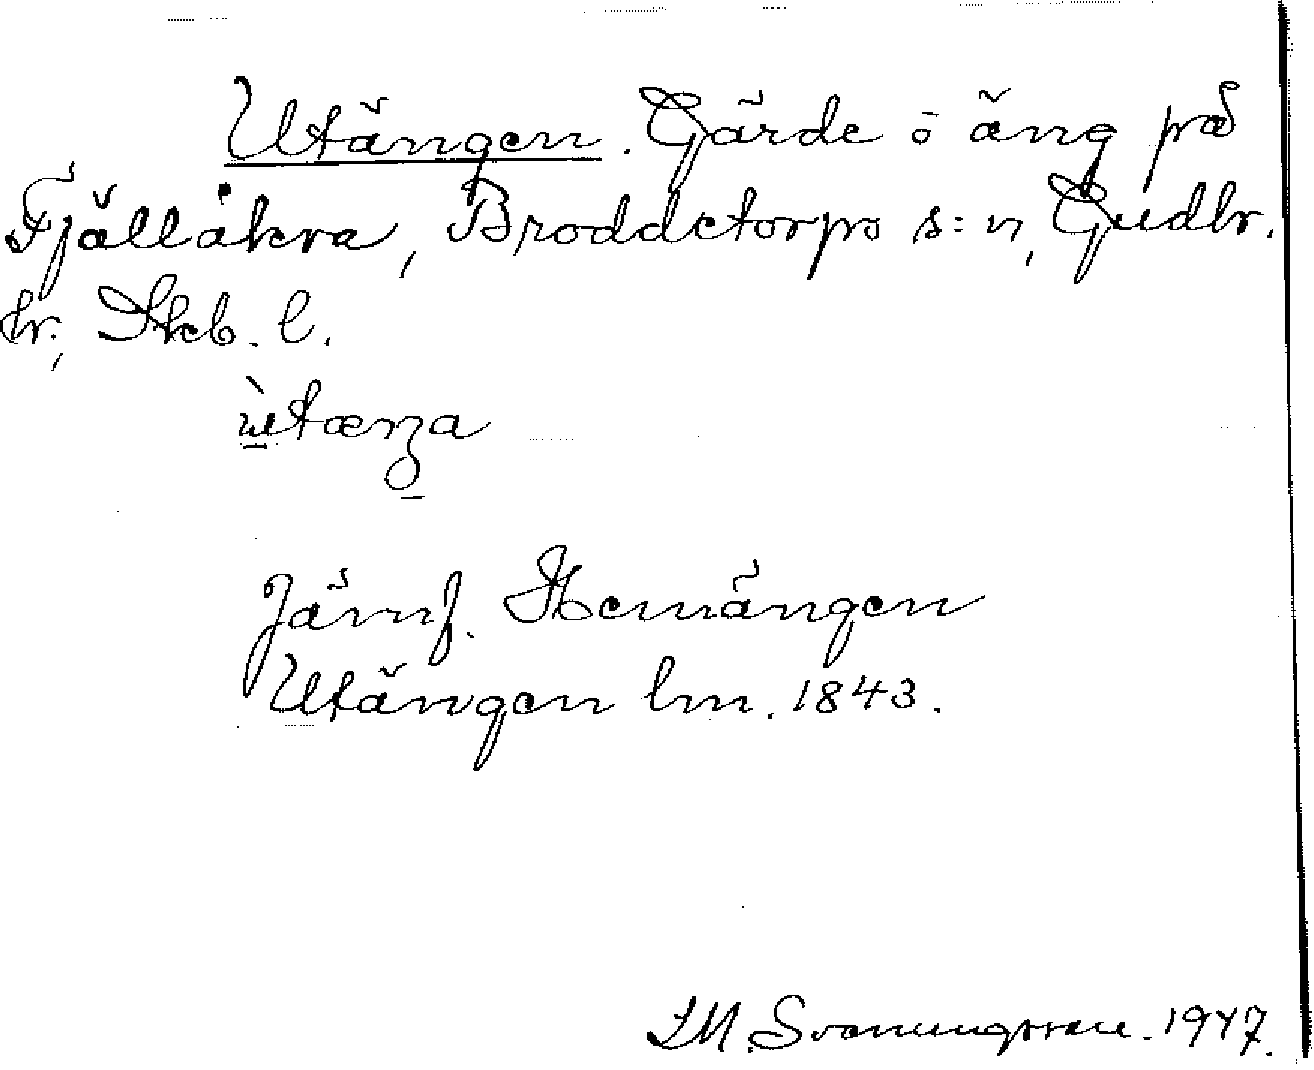 Utängen. Gärde o äng på
Fjällåkra, Broddetorps s:n, Gudhr.
hr., Skb. l.
ùtæŋa
Jämf. Hemängen
Utängen lm. 1843.
1947.